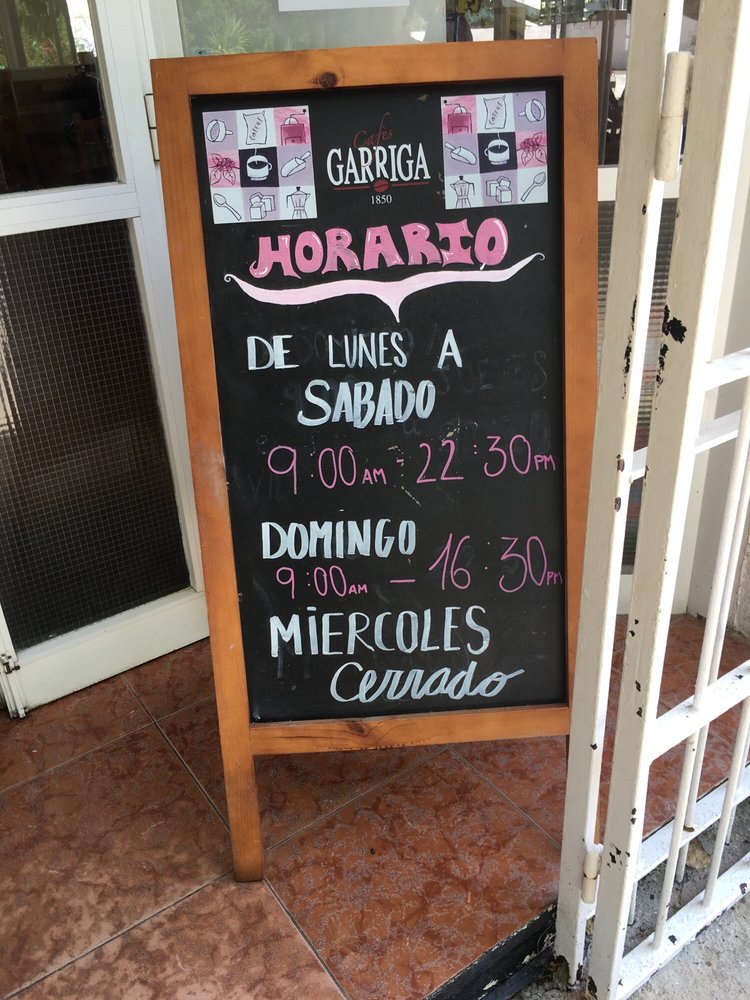 Cafés
GARRIGA
1850
HORARIO
DE LUNES A
SABADO
9:00 AM - 22:30 PM
DOMINGO
9:00 AM - 16:30 PM
MIERCOLES
Cerrado